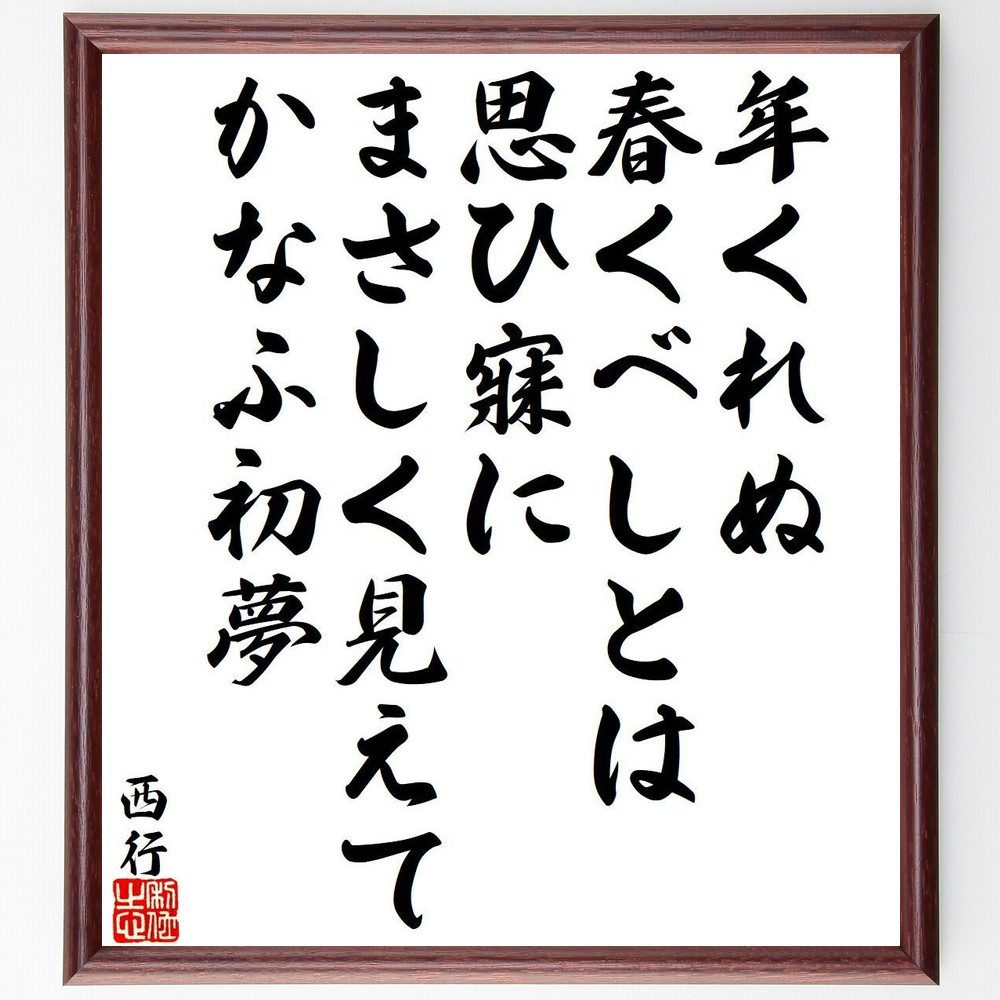 年くれぬ
春くべしとは
思ひ寐に
まさしく見えて
かなふ初夢
西行